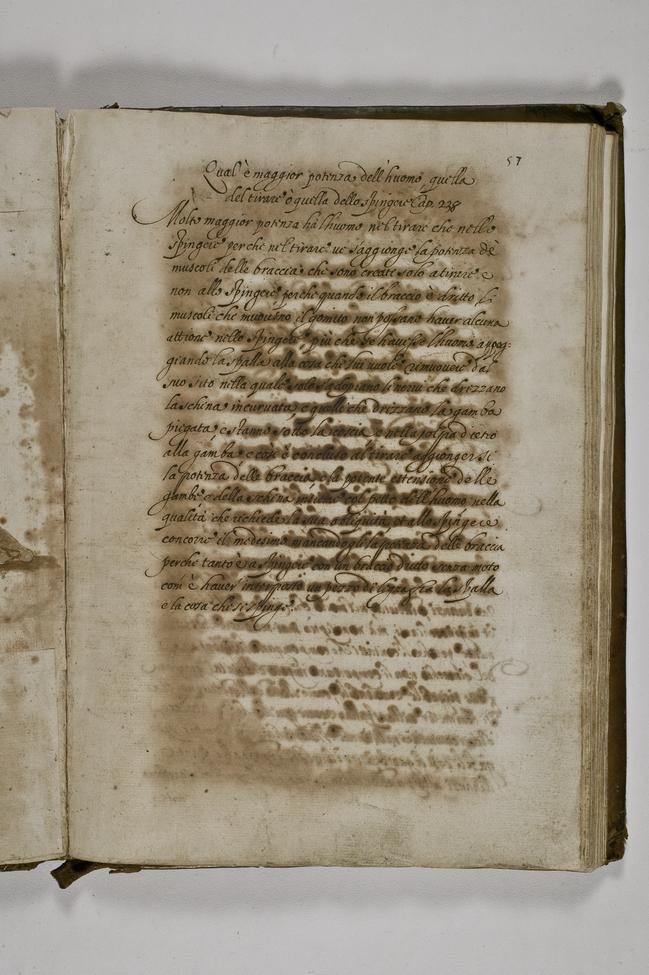 57
Qual'è maggior potenza dell'huomo, quella
del tirare ò quella dello spingere Cap. 228
Molto maggior potenza hà l'huomo nel tirare che nello
spingere perche nel tirare ve s'aggionge la potenza dè
muscoli delle braccia che sono creati solo a tirare e
non allo spingere perche quando il braccio è dritto li
muscoli che muovino il gomito non possano haver alcuna
attione nello spingere più che se havesse l'huomo appog-
giando la spalla alla cosa che lui vuole rimuovere dal
suo sito nella quale solo s'adopiano li nervi che drizzano
la schina incurvata e quelli che drizzano la gamba
piegata, e stanno sotto la coscia e nella polpa dietro
alla gamba e così è concluso al tirare aggiongersi
la potenza delle braccia e la potente estensione delle
gambe e della schina insieme col petto dell'huomo nella
qualità che richiede la sua obliquità, et allo spingere
concorre il medesimo mancandogli la potenza delle braccia
perche tanto è a spingere con un braccio dritto senza moto
com'è haver interposto un pezzo di legno fra la spalla
e la cosa che si spinge.